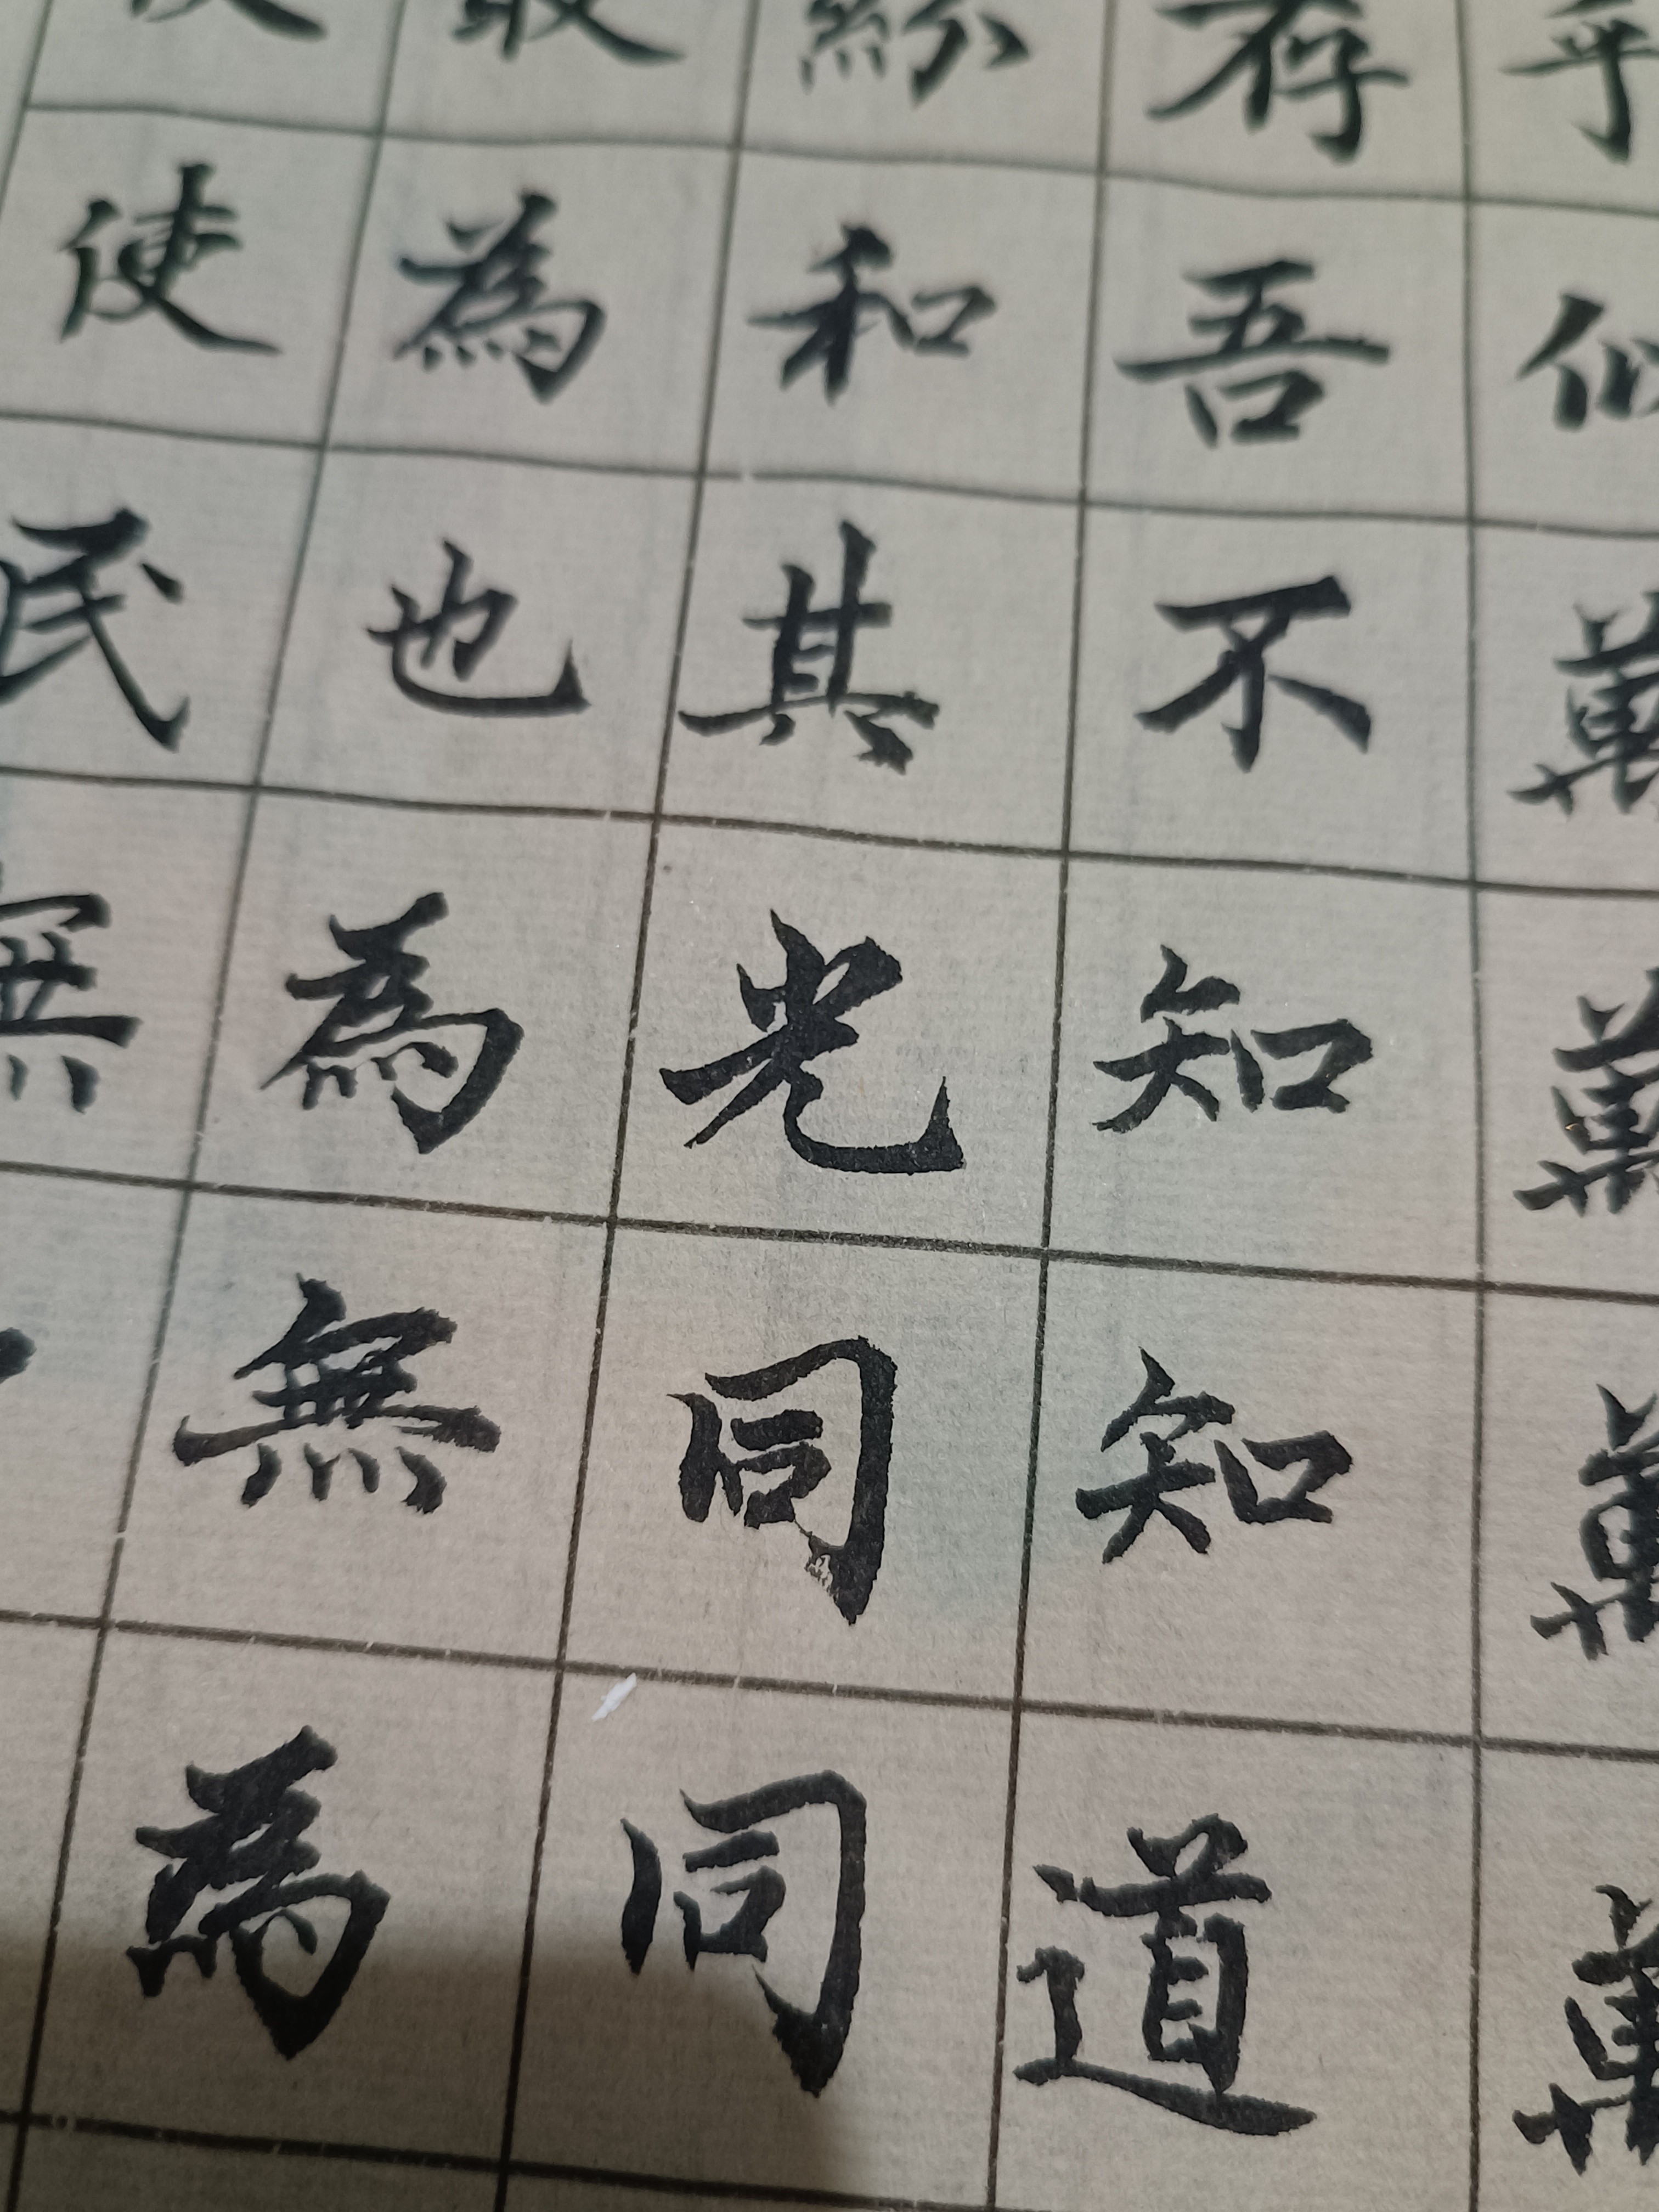 乎似萬萬萬萬
存吾不知知道
紛和其光同同
敢為也為無為
使民無